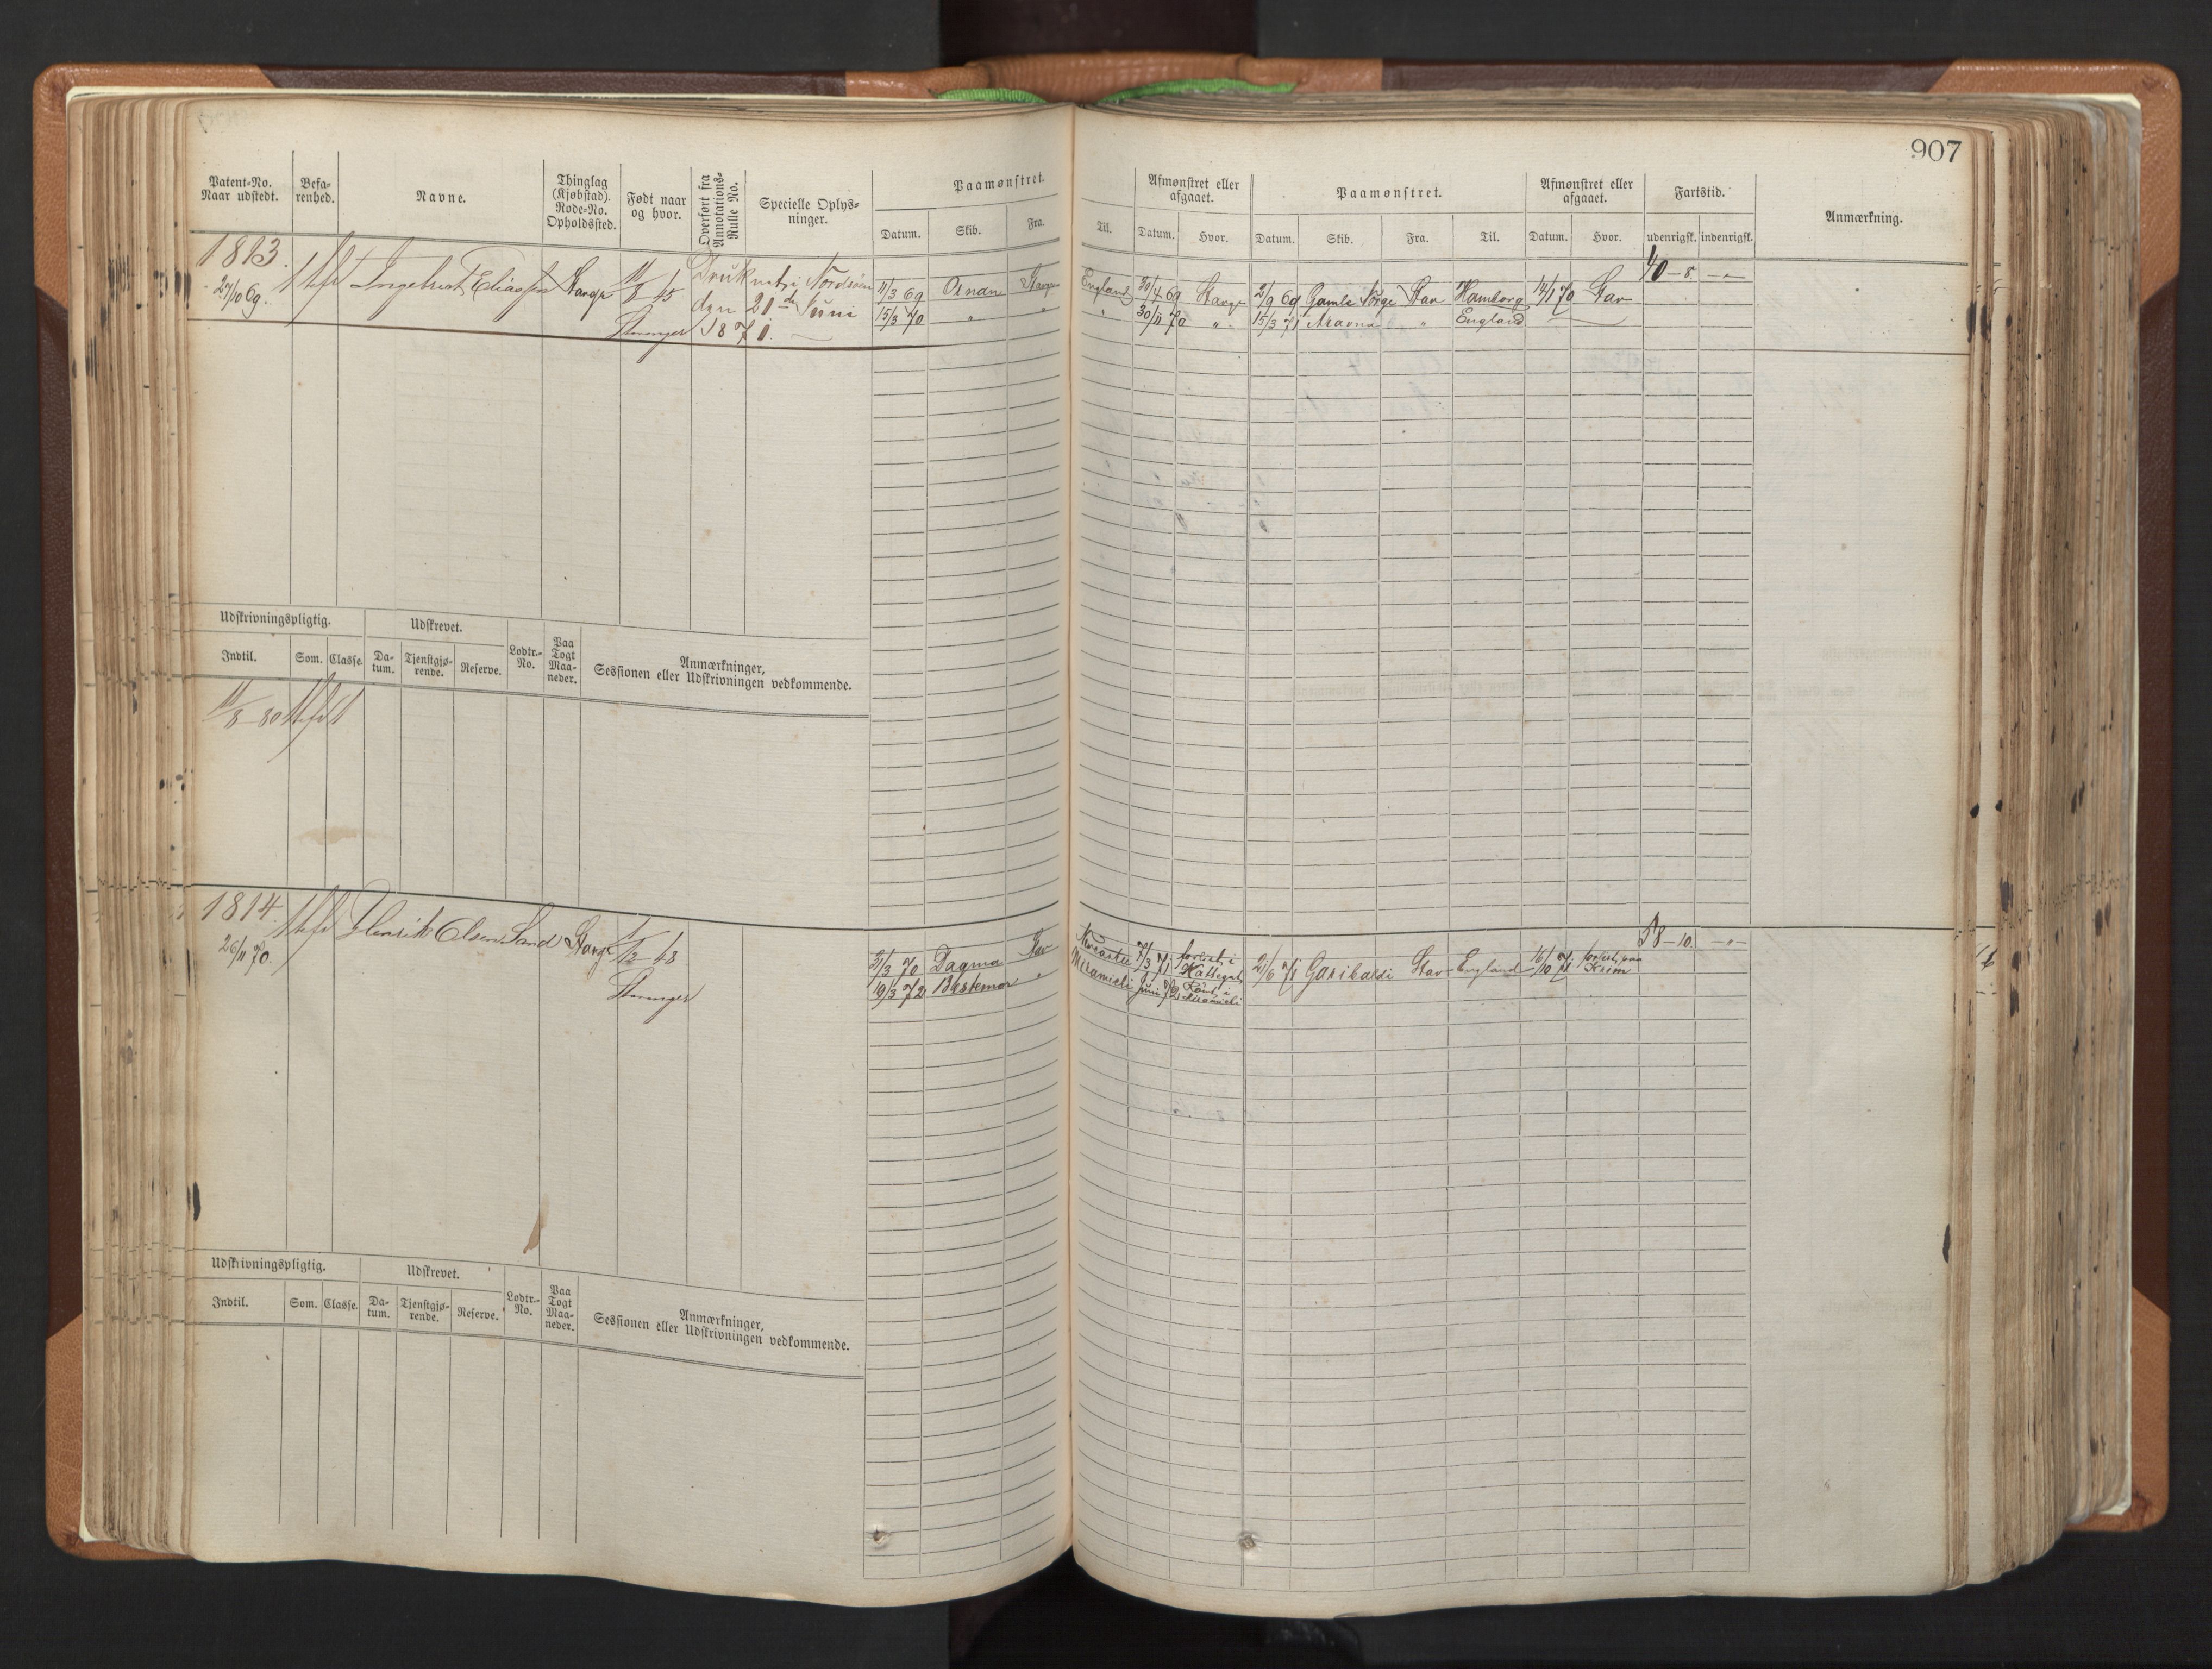 907
Patent-No. Naar udstedt.
Befa-
renhed.
Navne.
Thinglag
(Kjøbstad).
Rode-No.
Opholdssted.
Født naar
og hvor.
Overført fra
Annotations-
Rulle No.
Specielle Oplys-
ninger.
Paamønstret.
Datum.
Skib.
Fra.
Til.
Afmønstret eller
afgaaet.
Datum.
Hvor.
Paamønstret.
Datum.
Skib.
Fra.
Til.
Afmønstret eller
afgaaet.
Datum.
Hvor.
Fartstid.
udenrigsk.
indenrigsk.
Anmærkning.
1813.
27/10 69.
Ingebret Eliassen
11/8 45
Stavanger
Druknet i Nordsøen
den 21de Juni
1871.
11/3 69
England 30/4 69
2/9 69 Gamle Norge Stav Hamborg 14/1 70 Stav
40-8. -"-
15/3 70 " "
" 30/11 70 ".
15/3 71 " England
Udskrivningspligtig.
Udskrevet.
Indtil.
Som.
Classe.
Da-
tum.
Tjenstgjø-
rende.
Reserve.
Lodtr.-
No.
Paa
Togt
Maa-
neder.
Anmærkninger,
Sessionen eller Udskrivningen vedkommende.
11/8 80
1814.
26/11 70.
Henrik Olsen Sand
1/2 48
Stavanger
31/3 70 Dagmar Stav
7/3 71 forlist i
Kattegat
21/6 71 Garibaldi Stav England 16/10 71 forlist paa
58-10. -"-
19/3 72 Bestemor "
Miramichi Juni 72 Rømt i
Miramichi
Udskrivningspligtig.
Udskrevet.
Indtil.
Som.
Classe.
Da-
tum.
Tjenstgjø-
rende.
Reserve.
Lodtr.-
No.
Paa
Togt
Maa-
neder.
Anmærkninger,
Sessionen eller Udskrivningen vedkommende.